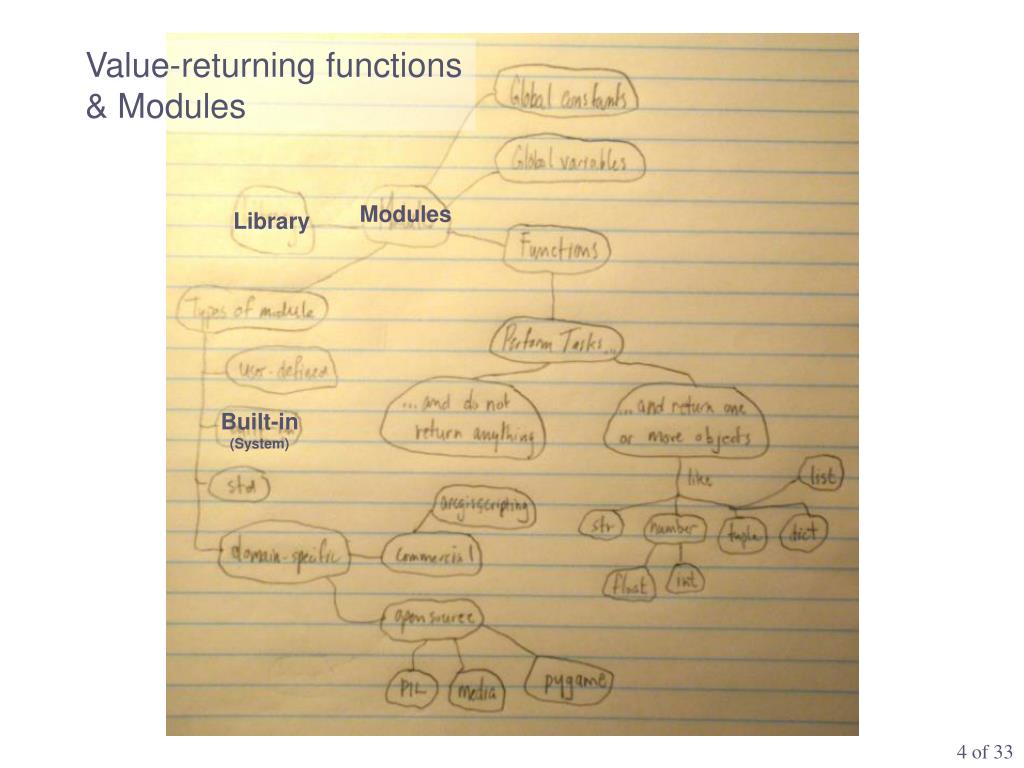 Value-returning functions
& Modules
Global constants
Global variables
Library
Modules
Functions
Types of module
Perform Tasks...
user-defined
...and do not
return anything
...and return one
or more objects
Built-in
(System)
like
list
std
arcgisscripting
str
number
tuple
dict
domain-specific
commercial
float
int
open source
PIL
media
pygame
4 of 33